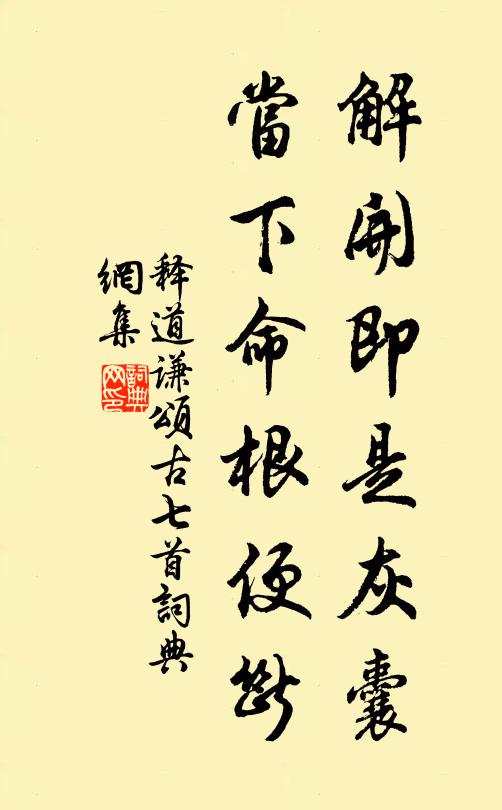 解開即是灰囊
當下命根便斷
释道谦頌古七首詞典
網集
詞典
网印